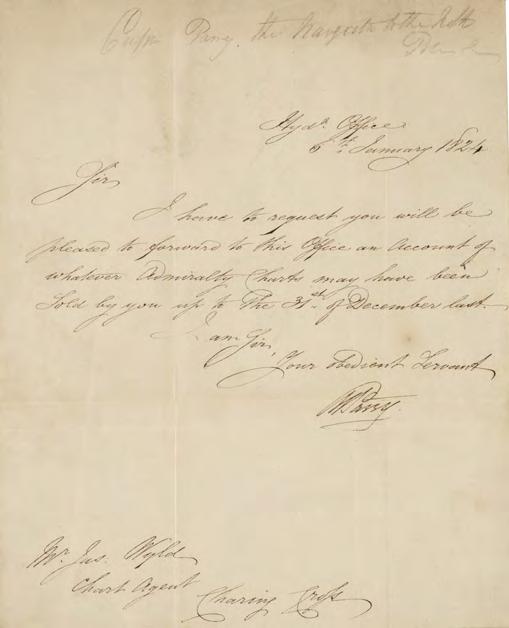 Captn Parry. the Navigator to the North
Hydl. Office
6th. January 1824
Sir
I have to request you will be
pleased to forward to this Office an Account of
whatever Admiralty Charts may have been
Sold by you up to the 31st. of December last.
I am Sir,
Your obedient Servant
WEParry.
Mr. Jas. Wyld
Chart Agent
Charing Cross